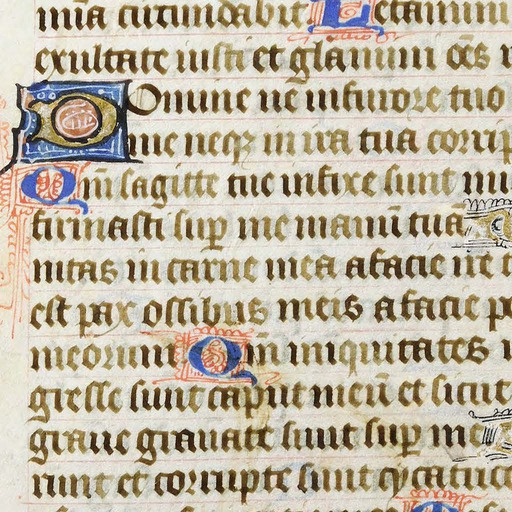 mia circundabit Letamini
exultate iusti et gl'amini oēs
Domine ne in furore tuo
me neqꝫ in ira tua corrip
Qm̄ sagitte tue infixe sunt mi
firmasti sup me manū tua
nitas in carne mea afacie ire t
est pax ossibus meis afacie pe
meorum Qm̄ iniquitates
gresse sunt caput meū et sicut
graue grauate sunt sup me
runt et corrupte sunt cycatric